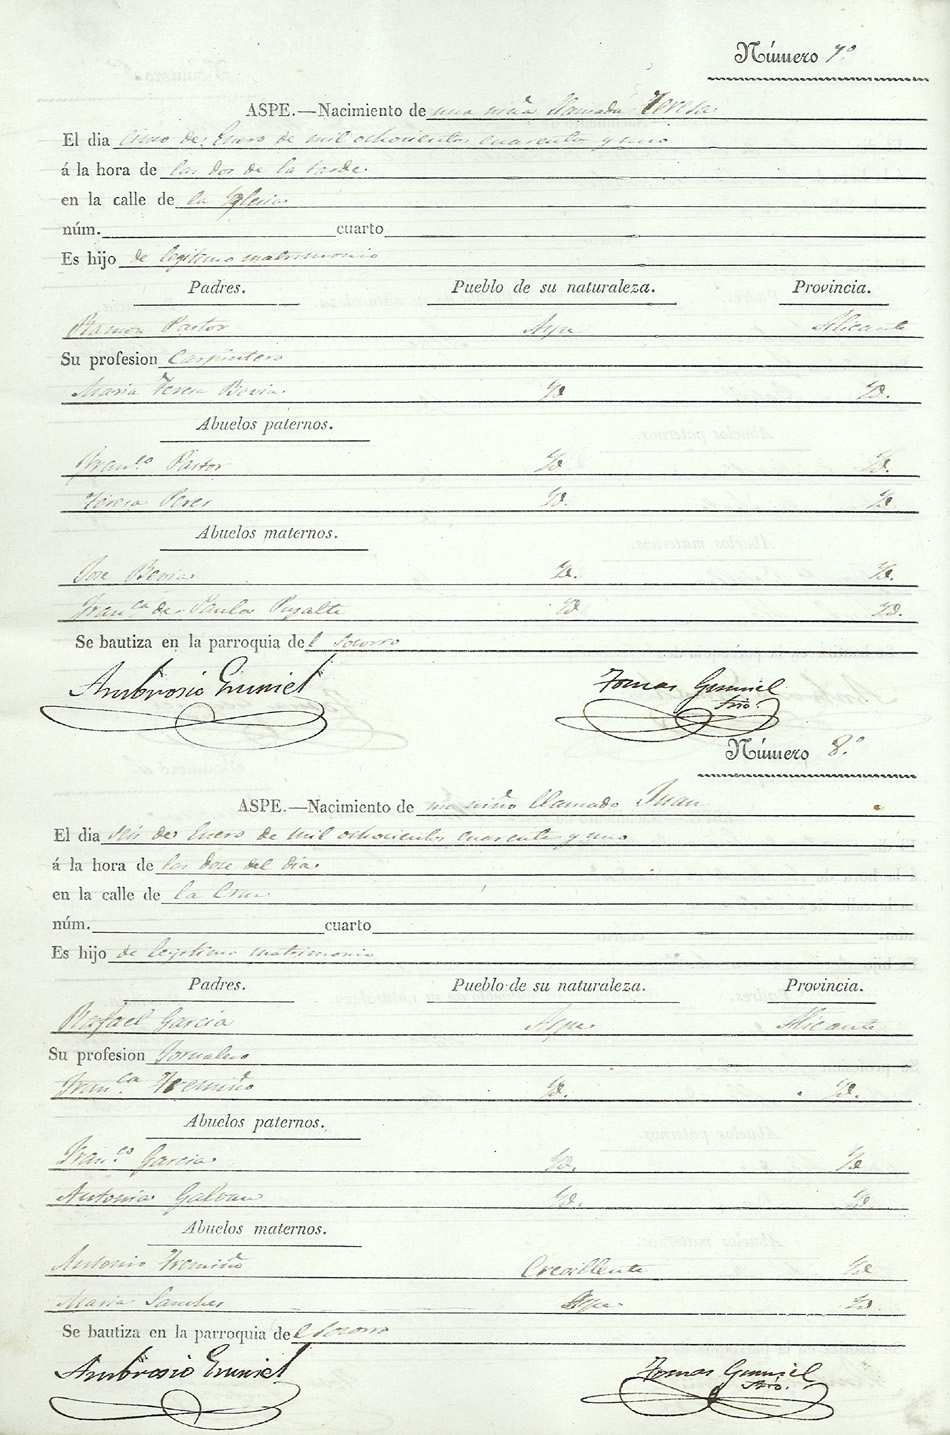 Número 7º
ASPE.—Nacimiento de una niña llamada Teresa
El dia cinco de Enero de mil ochocientos cuarenta y uno
á la hora de las dos de la tarde
en la calle de la Iglesia
núm. cuarto
Es hijo de legitimo matrimonio
Padres. Pueblo de su naturaleza. Provincia.
Ramon Pastor Aspe Alicante
Su profesion Carpintero
Maria Teresa Bovia Yd. Yd.
Abuelos paternos.
Fran.co Pastor Yd. Yd.
Teresa Peres Yd. Yd.
Abuelos maternos.
Jose Bovia Yd. Yd.
Fran.ca de Paula Pujalte Yd. Yd.
Se bautiza en la parroquia del Socorro
Ambrosio Tomas
Srio.
Número 8.º
ASPE.—Nacimiento de un niño llamado Juan
El dia seis de Enero de mil ochocientos cuarenta y uno
á la hora de las doce del dia
en la calle de la Cruz
núm. cuarto
Es hijo de legitimo matrimonio
Padres. Pueblo de su naturaleza. Provincia.
Rafael Garcia Aspe Alicante
Su profesion Jornalero
Fran.ca Tremiño Yd. Yd.
Abuelos paternos.
Fran.co Garcia Yd. Yd.
Antonia Galvan Yd. Yd.
Abuelos maternos.
Antonio Tremiño Crevillente Yd.
Maria Sanches Aspe Yd.
Se bautiza en la parroquia del Socorro
Ambrosio Tomas
Srio.